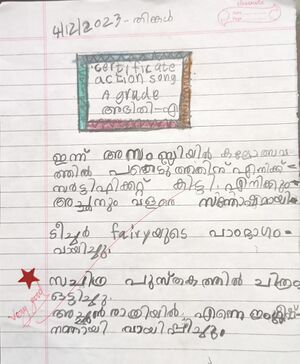 4/12/2023 - തിങ്കൾ
certificate
action song
A grade
അഭിതി-എ
ഇന്ന് അസംബ്ലിയിൽ കലോത്സവ
ത്തിൽ പങ്കെടുത്തതിന് എനിക്ക്
സർട്ടിഫിക്കറ്റ് കിട്ടി. എനിക്കും
അച്ഛനും വളരെ സന്തോഷമായി.
ടീച്ചർ fairyയുടെ പാഠഭാഗം
വായിച്ചു.
സചിത്ര പുസ്തകത്തിൽ ചിത്രം
ഒട്ടിച്ചു.
അച്ഛൻ രാത്രിയിൽ എന്നെ ഇംഗ്ലീഷ്
നന്നായി വായിപ്പിച്ചു.
Very good